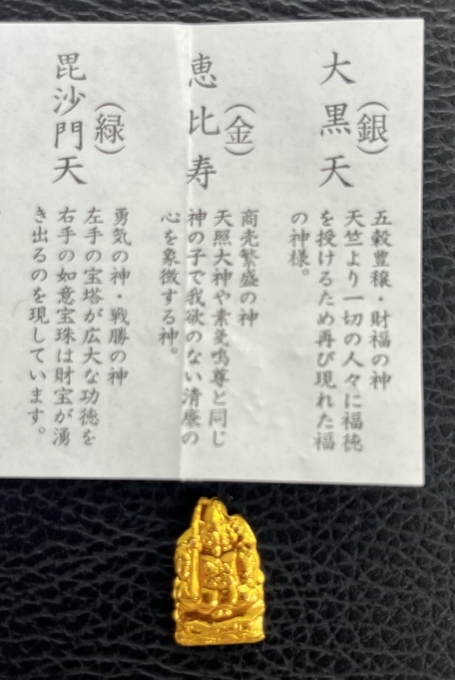 大黒天
(銀)
五穀豊穣・財福の神
天竺より一切の人々に福徳
を授けるため再び現れた福
の神様。
恵比寿
(金)
商売繁盛の神
天照大神や素戔嗚尊と同じ
神の子で我欲のない清廉の
心を象徴する神。
毘沙門天
(緑)
勇気の神・戦勝の神
左手の宝塔が広大な功徳を
右手の如意宝珠は財宝が湧
き出るのを現しています。